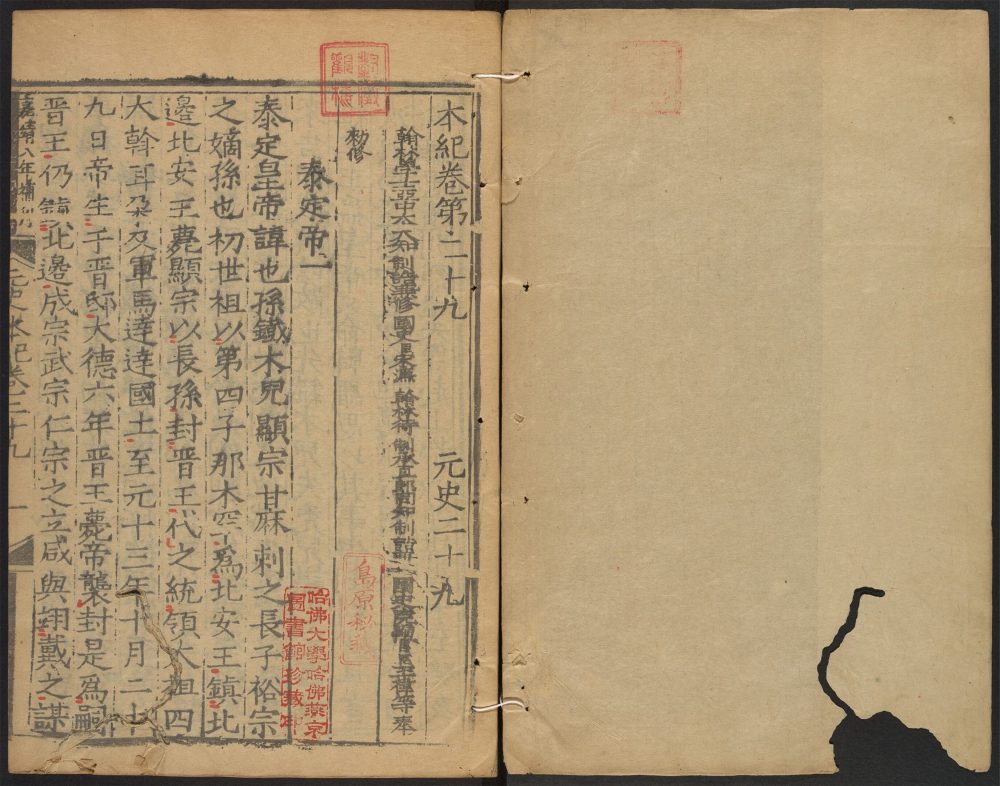 本紀卷第二十九 元史二十九
翰林學士亞中大夫知制誥兼修國史臣宋濂 翰林待制承直郎同知制誥兼國史院編修官臣王禕等奉
勅修
泰定帝一
泰定皇帝諱也孫鐵木兒顯宗甘麻剌之長子裕宗
之嫡孫也初世祖以第四子那木罕爲北安王鎮北
邊北安王薨顯宗以長孫封晉王代之統領太祖四
大斡耳朶及軍馬達達國土至元十三年十月二十
九日帝生于晉邸大德六年晉王薨帝襲封是爲嗣
晉王仍鎮北邊成宗武宗仁宗之立咸與翊戴之謀
嘉靖八年補刊
元史本紀卷二十九
一
島原秘藏
哈佛大學哈佛燕京
圖書館珍藏印